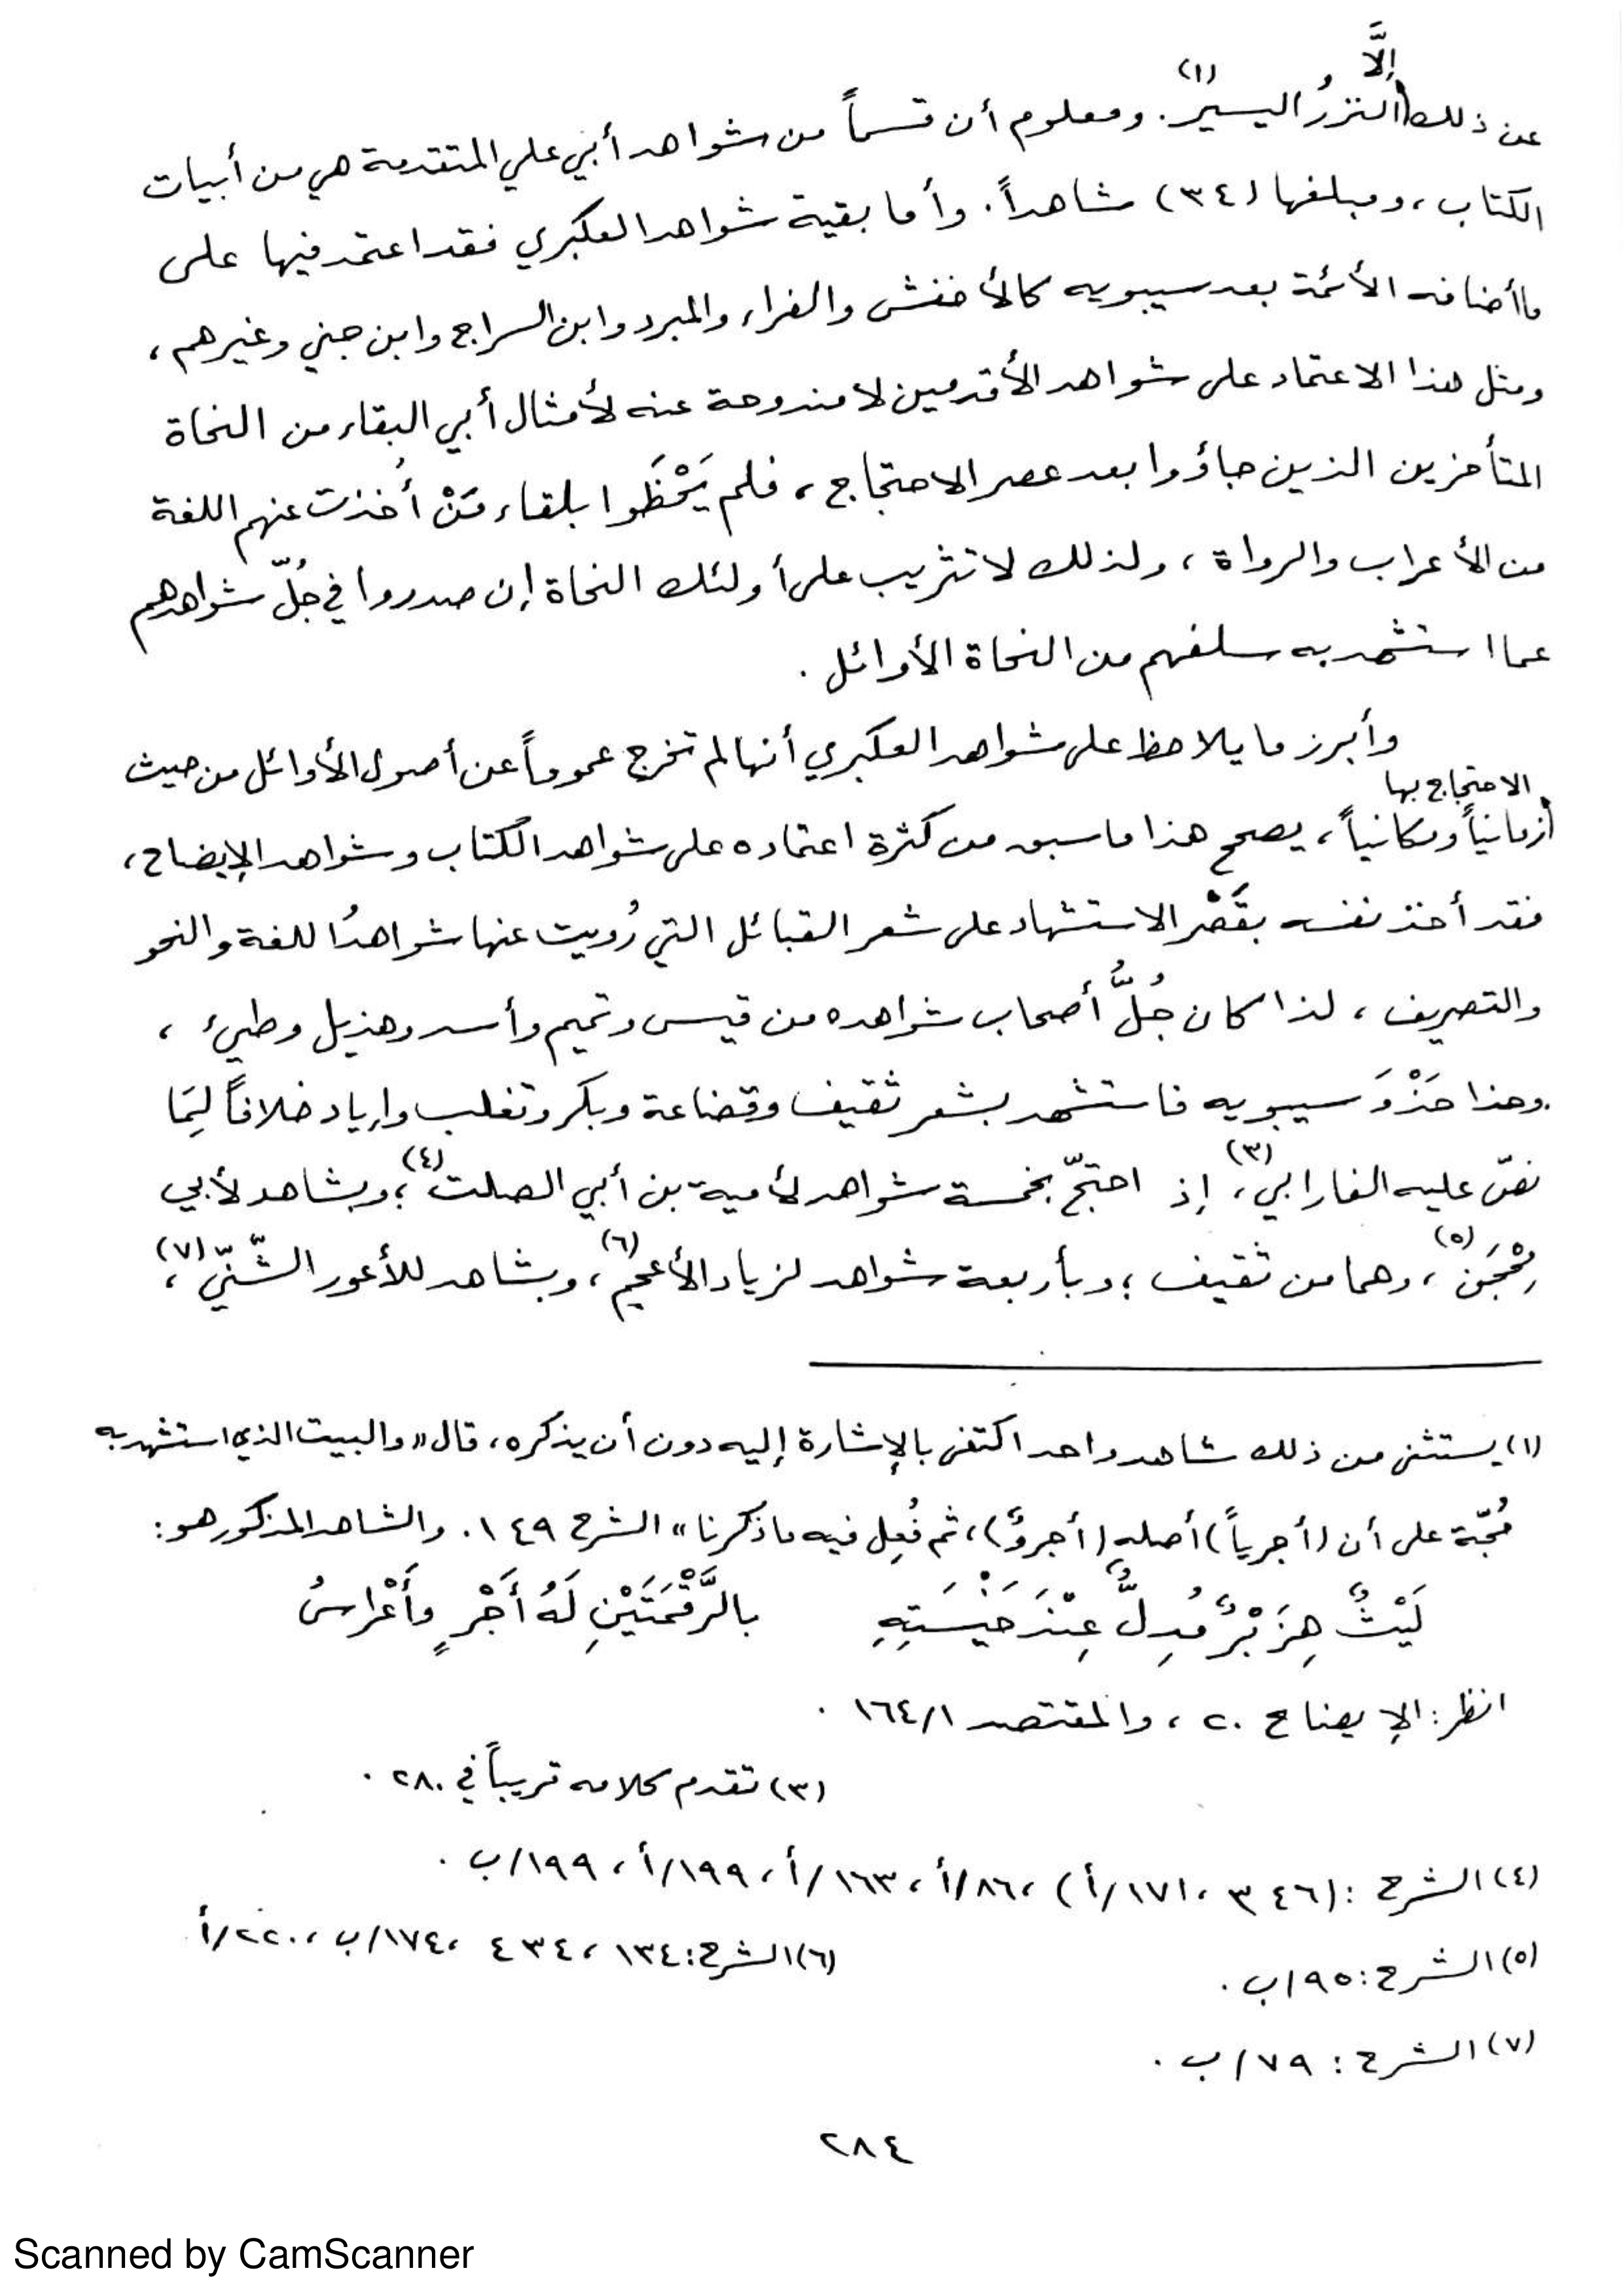 عن ذلك إلَّا النزرُ اليسيرُ (١). ومعلوم أن قسماً من شواهد أبي علي المتقدمة هي من أبيات
الكتاب، ومبلغها (٣٤) شاهداً. وأما بقية شواهد العكبري فقد اعتمد فيها على
ما أضافه الأئمة بعد سيبويه كالأخفش والفراء والمبرد وابن السراج وابن جني وغيرهم،
ومثل هذا الاعتماد على شواهد الأقدمين لا مندوحة عنه لأمثال أبي البقاء من النحاة
المتأخرين الذين جاؤوا بعد عصر الاحتجاج، فلم يَحْظَوا بلقاء مَنْ أُخذت عنهم اللغة
من الأعراب والرواة، ولذلك لا تثريب على أولئك النحاة إن صدروا في جُلّ شواهدهم
عما استشهد به سلفهم من النحاة الأوائل.
وأبرز ما يلاحظ على شواهد العكبري أنها لم تخرج عموماً عن أصول الأوائل من حيث
الاحتجاج بها
زمانياً ومكانياً، يصحح هذا ما سبق من كثرة اعتماده على شواهد الكتاب وشواهد الإيضاح،
فقد أخذ نفسه بقَصْر الاستشهاد على شعر القبائل التي رُويت عنها شواهدُ اللغة والنحو
والتصريف، لذا كان جُلُّ أصحاب شواهده من قيس وتميم وأسد وهذيل وطيئ،
وحذا حَذْوَ سيبويه فاستشهد بشعر ثقيف وقضاعة وبكر وتغلب وإياد خلافاً لِمَا
نصّ عليه الفارابي (٣)، إذ احتجّ بخمسة شواهد لأمية بن أبي الصلت (٤)؛ وبشاهد لأبي
مِحْجَن (٥)، وهما من ثقيف؛ وبأربعة شواهد لزياد الأعجم (٦)، وبشاهد للأعور الشَّنّيّ (٧)،
(١) يستثنى من ذلك شاهد واحد اكتفى بالإشارة إليه دون أن يذكره، قال «والبيت الذي استشهد به
حُجّة على أن (أجرياً) أصله (أجروٌ)، ثم فُعِل فيه ما ذكرنا» الشرح ١٤٩. والشاهد المذكور هو:
لَيْثٌ هِزَبْرٌ مُدِلٌّ عِنْدَ خَيْسَتِهِ بالرَّقْمَتَيْنِ لَهُ أَجْرٍ وأَعْراسُ
انظر: الإيضاح ٢٠، والمقتصد ١٦٤/١.
(٣) تقدم كلامه قريباً في ٢٨٠.
(٤) الشرح: (٣٤٦، ١٧١/أ)، ٨٦/أ، ١٦٣/أ، ١٩٩/أ، ١٩٩/ب.
(٥) الشرح: ٩٥/ب.
(٦) الشرح: ١٣٤، ٤٣٤، ١٧٤/ب، ٢٢٠/أ
(٧) الشرح: ٧٩/ب.
٢٨٤
Scanned by CamScanner